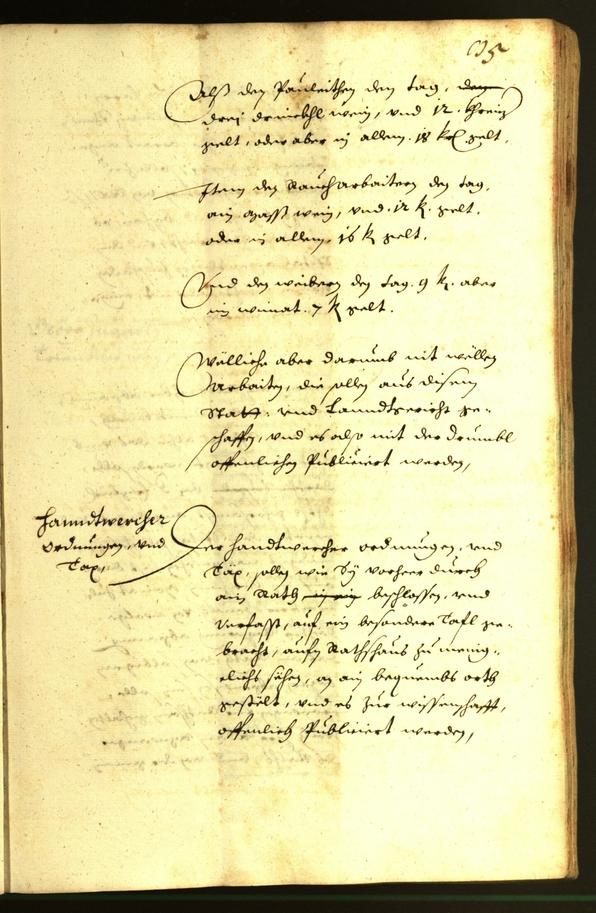 Alß den Pauleithen den tag, den
drej driniekhl wein, und 12. Khreiz
gelt, oder aber in allem. 18 kr. gelt.
Item den Rauch arbaitern den tag,
ain mass wein, und. 12 k. gelt.
oder in allem, 16 k gelt.
Und den weibern den tag. 9 k. aber
im winat. 7 k gelt.
Welliche aber darumb nit wöllen
Arbaiten, die sollen aus disem
Statt: und Lanndtgericht ge-
schaffen, und es also mit der Drumbl
offenlichen Publiciert werden,
Hanndtwercher
Ordnungen, und
Tax,
Der Handtwercher ordnungen, und
Tax, sollen wie bÿ vorheer durch
ain Rath beschlossen, und
verfasst, auf ein besondere Tafl ge-
bracht, aufm Rathshaus zu menig-
clichs sehen, an ain bequembs orth
gestelt, und es zur wissenschafft,
offenlich Publiciert werden,